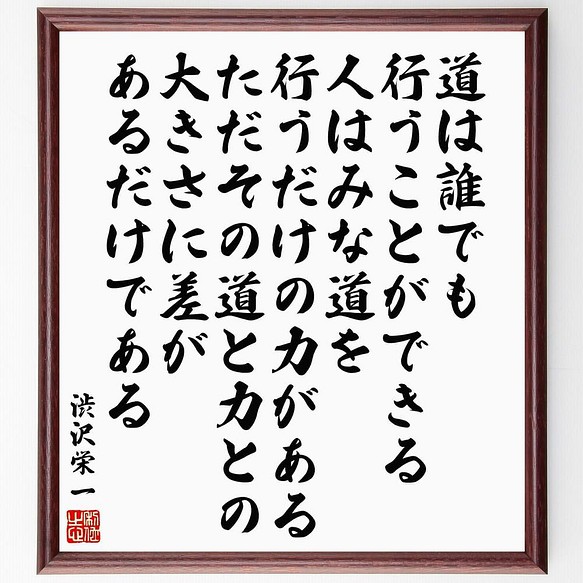 道は誰でも
行うことができる
人はみな道を
行うだけの力がある
ただその道と力との
大きさに差が
あるだけである
渋沢栄一